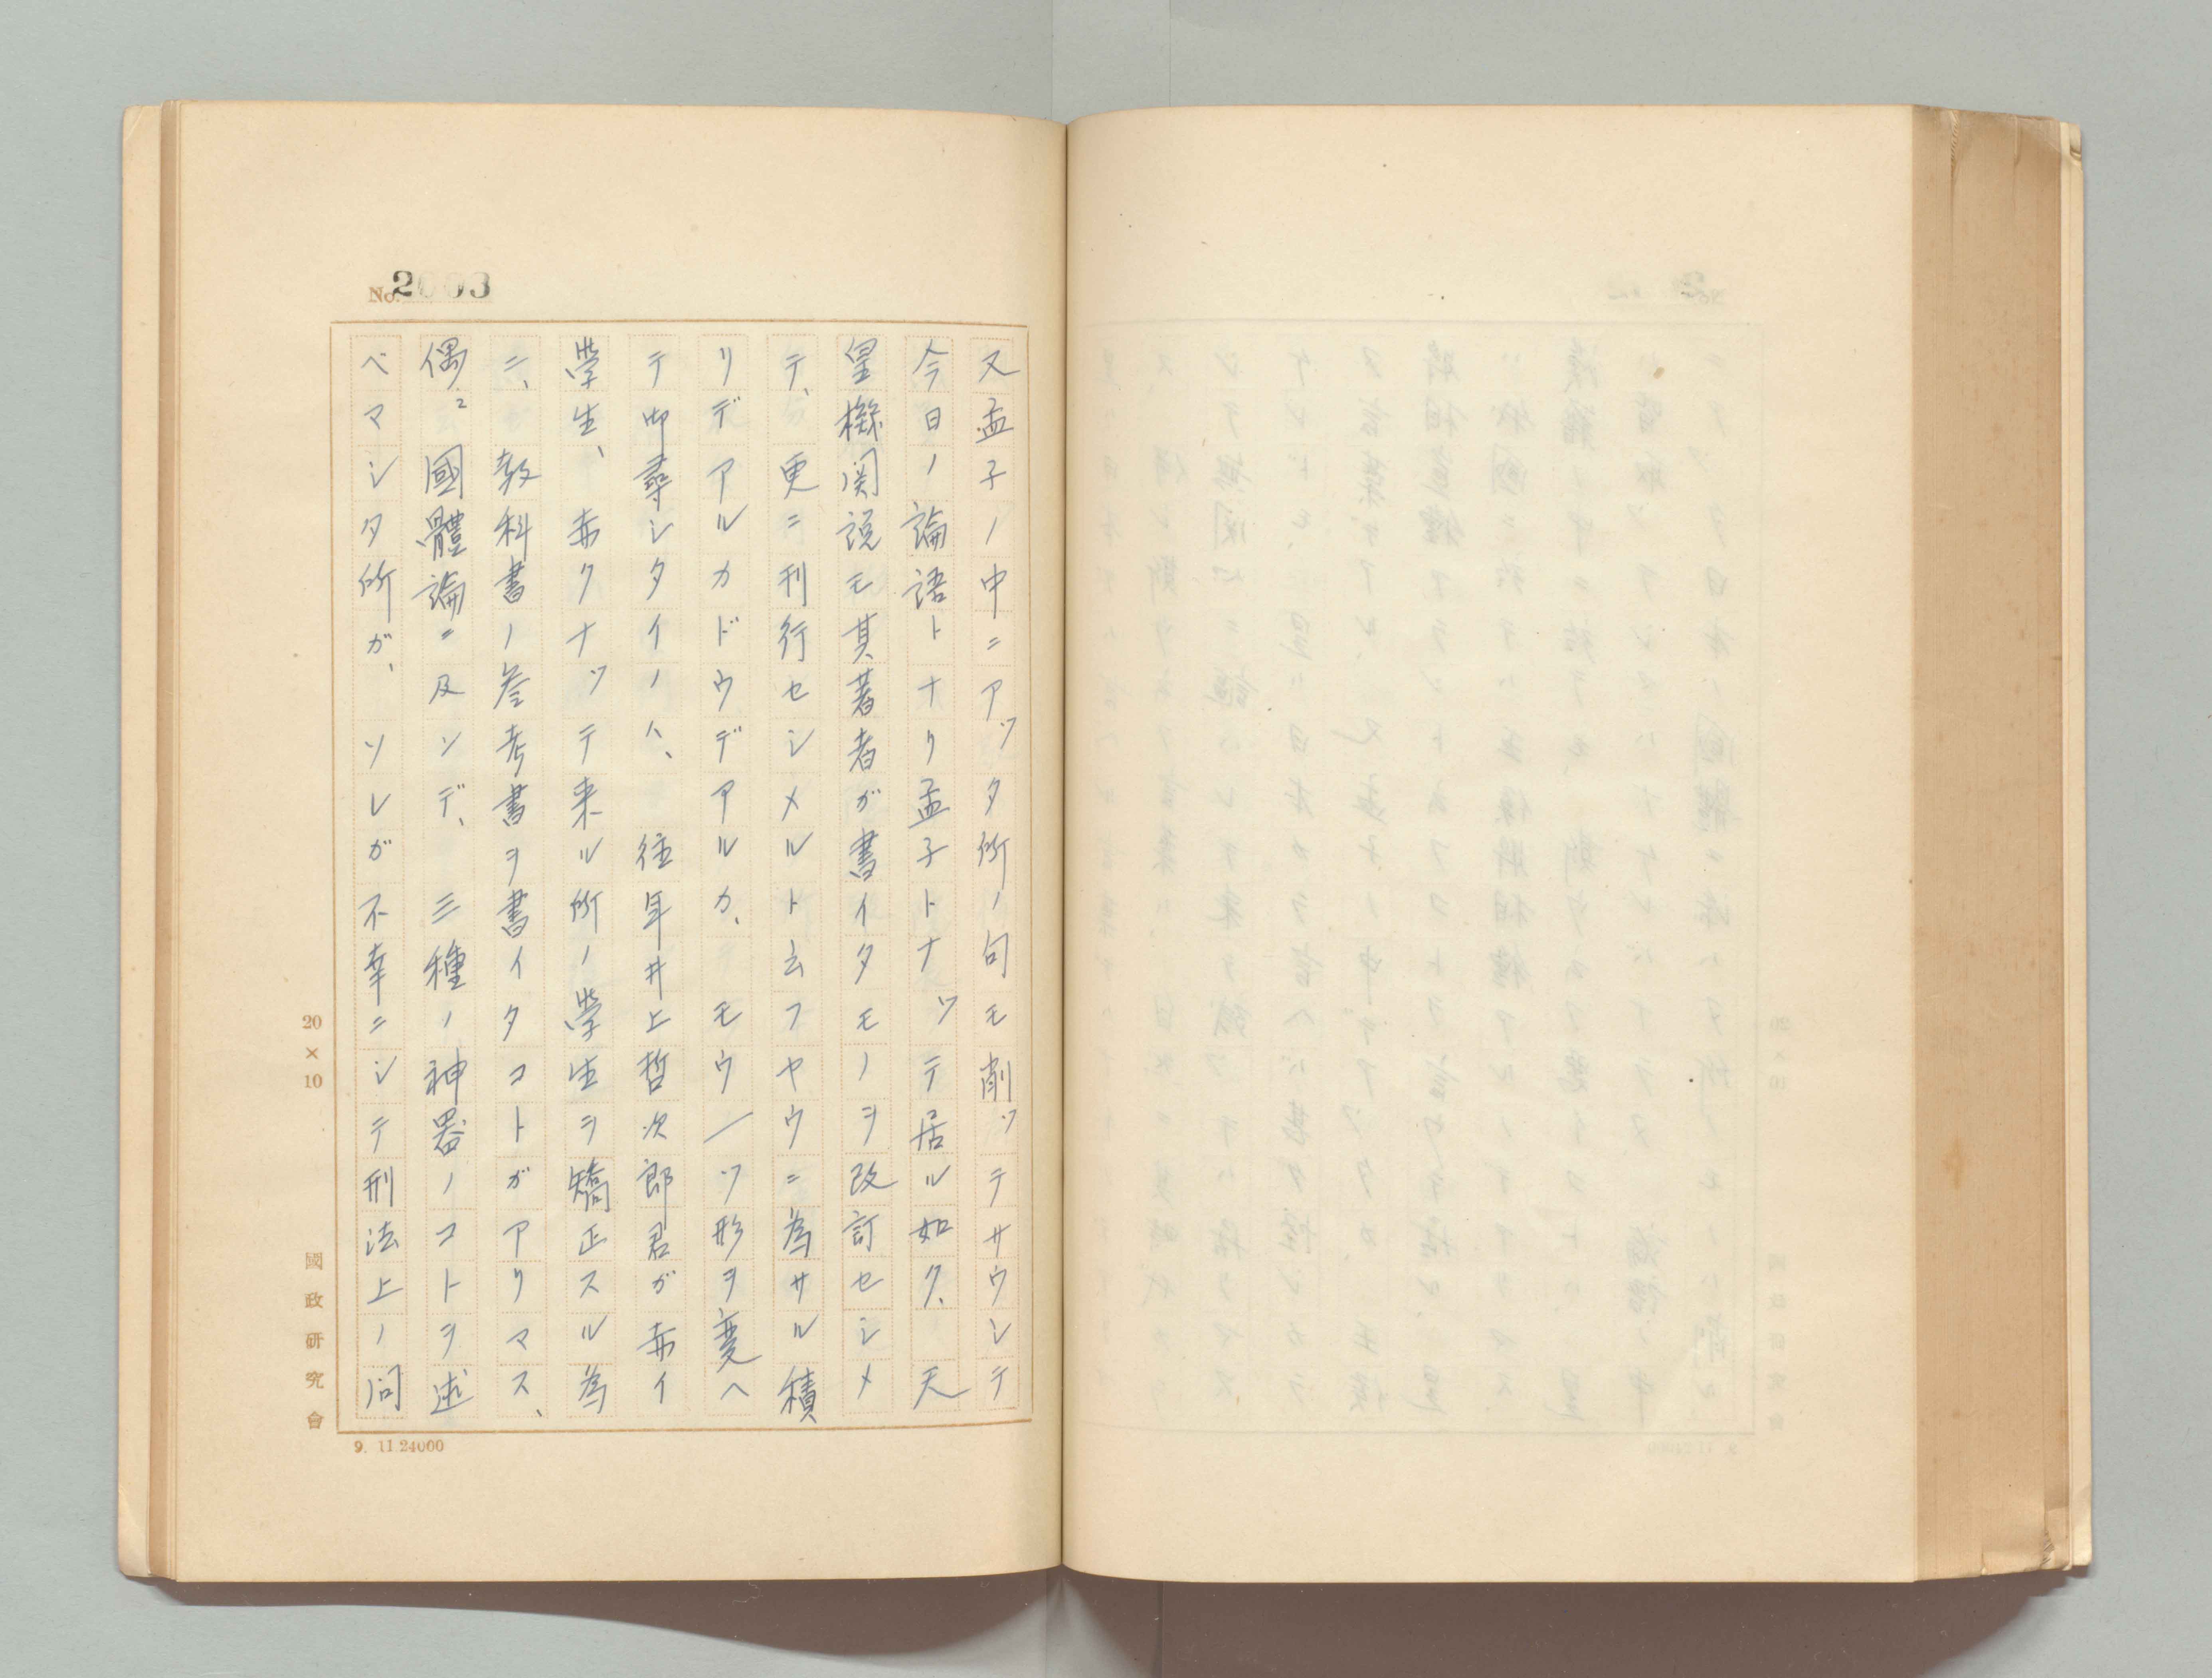 No. 2003
又孟子ノ中ニアッタ所ノ句モ削ッテサウシテ
今日ノ論語トナリ孟子トナッテ居ル如ク、天
皇機関説モ其著者ガ書イタモノヲ改訂セシメ
テ、更ニ刊行セシメルト云フヤウニ為サル積
リデアルカドウデアルカ、モウ一ツ形ヲ変ヘ
テ御尋シタイノハ、往年井上哲次郎君ガ赤イ
學生、赤クナッテ来ル所ノ學生ヲ矯正スル為
ニ、教科書ノ参考書ヲ書イタコトガアリマス、
偶〻國體論ニ及ンデ、三種ノ神器ノコトヲ述
ベマシタ所ガ、ソレガ不幸ニシテ刑法上ノ問
20×10
國政研究會
9. 11 24000